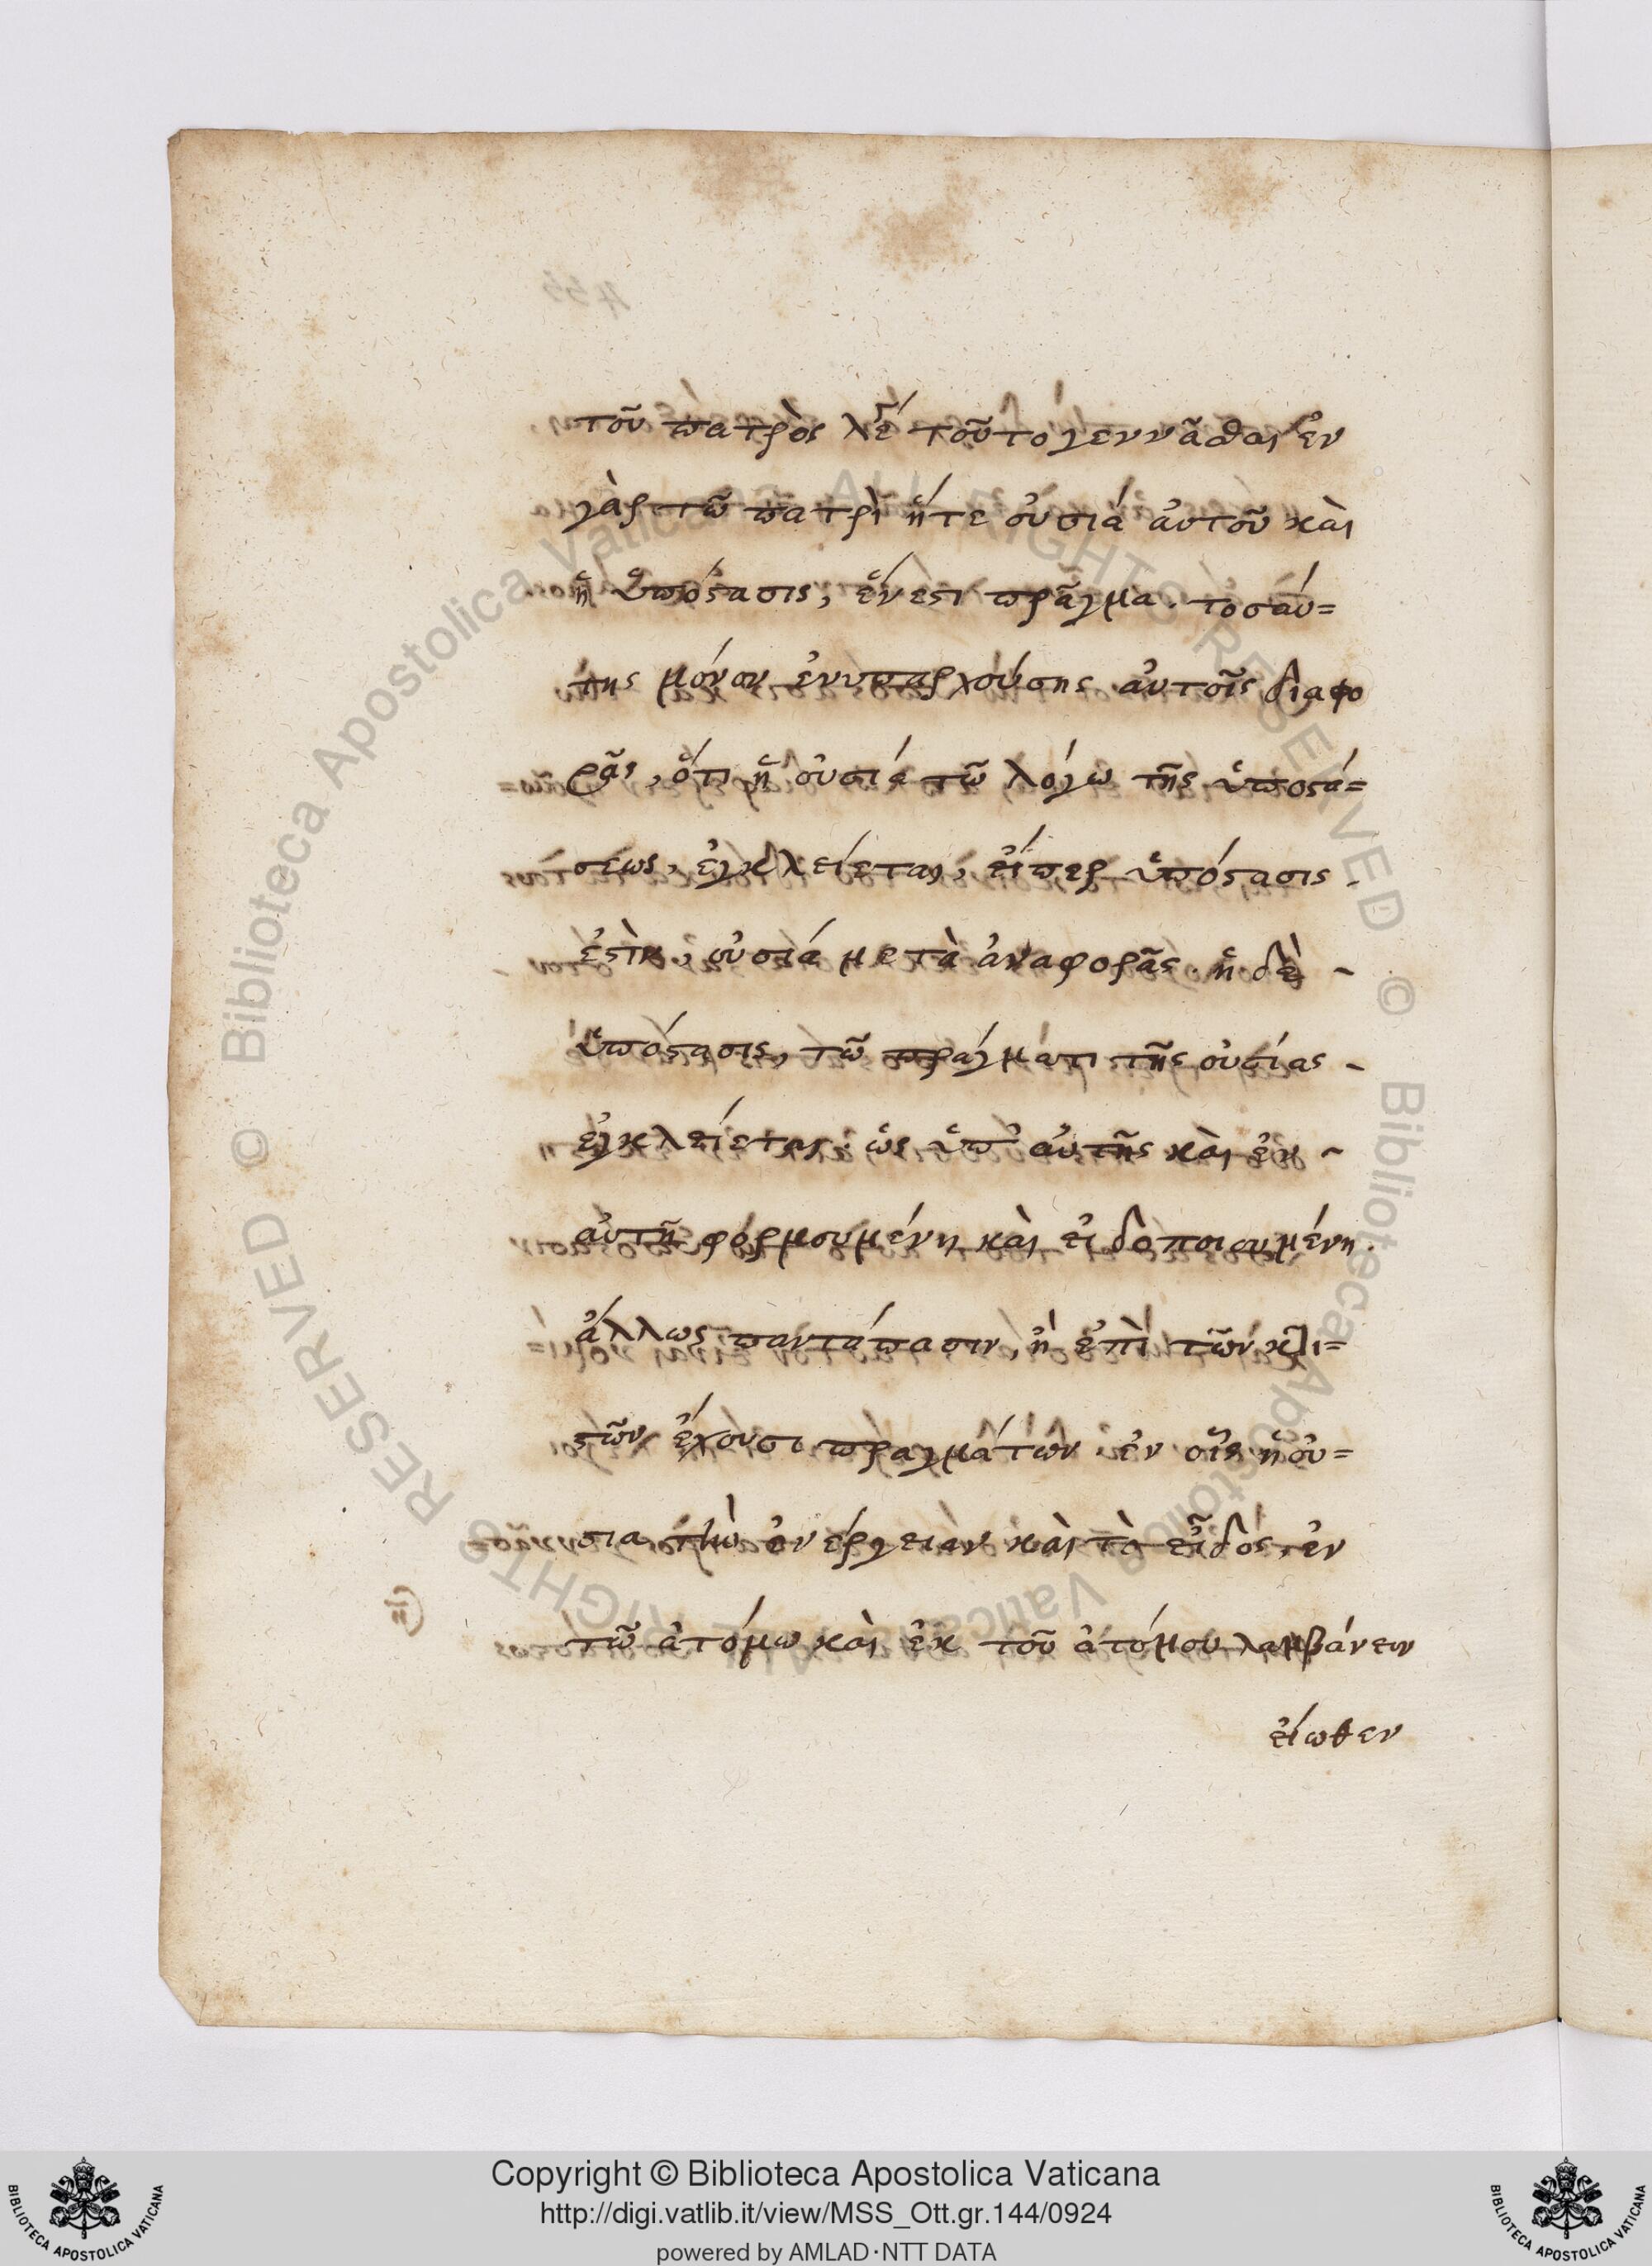 τοῦ πατρὸς λέ τοῦτο γεννᾶσθαι ἐν
γὰρ τῷ πατρὶ ἥτε οὐσιά ἀυτοῦ καὶ
ἡ ὑπόστασις, ἕν εστι πρᾶγμα. τοσάυ=
της μόνον ἐνυπαρχούσης ἀυτοῖς διαφο
ρᾶς, ὅτι ἡ οὐσιά τῶ λόγω τῆς ὑποστά=
σεως, ἐγκλείεται, εἴπερ ὑπόστασις
ἐστὶν, οὐσιά μετὰ ἀναφορᾶς. ἡ δὲ ~
ὑπόστασις, τῶ πράγματι τῆς οὐσίας ~
ἐγκλείεται. ὡς ὑπ' ἀυτῆς καὶ ἐν ~
αὐτῆ φορμουμένη καὶ εἰδοποιουμένη.
ἄλλως παντάπασιν, ἢ ἐπὶ τῶν κτι=
στῶν ἔχουσι πραγμάτων ἐν οἷς ἡ οὐ=
σια τὴν ἐνέργειαν καὶ τὸ εἶδος, ἐν
τῶ ἀτόμω καὶ ἐκ τοῦ ἀτόμου λαμβάνειν
εἴωθεν
Copyright © Biblioteca Apostolica Vaticana
http://digi.vatlib.it/view/MSS_Ott.gr.144/0924
powered by AMLAD·NTT DATA
BIBLIOTECA APOSTOLICA VATICANA
BIBLIOTECA APOSTOLICA VATICANA
© Biblioteca Apostolica Vaticana ALL RIGHTS RESERVED © Biblioteca Apostolica Vaticana ALL RIGHTS RESERVED